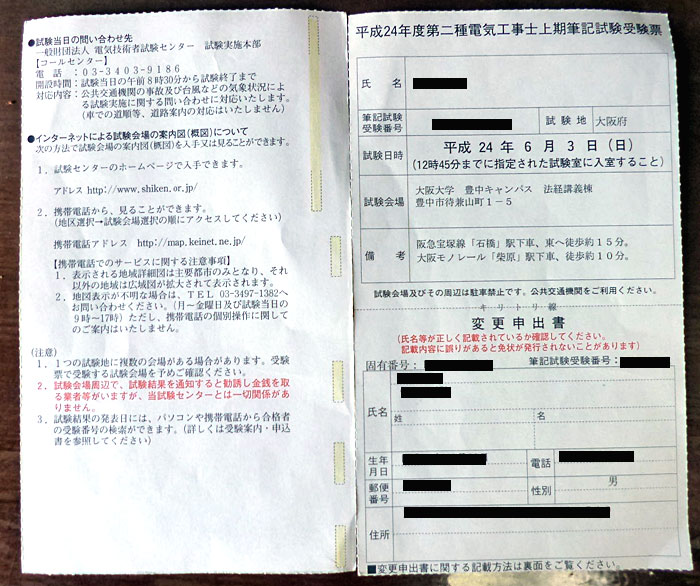 ●試験当日の問い合わせ先
一般財団法人 電気技術者試験センター 試験実施本部
【コールセンター】
電話:03-3403-9186
開設時間:試験当日の午前8時30分から試験終了まで
対応内容:公共交通機関の事故及び台風などの気象状況によ
る試験実施に関する問い合わせに対応いたします。
(車での道順等、道路案内の対応はいたしません)
●インターネットによる試験会場の案内図(概図)について
次の方法で試験会場の案内図(概図)を入手又は見ることができます。
1.試験センターのホームページで入手できます。
アドレス http://www.shiken.or.jp/
2.携帯電話から、見ることができます。
(地区選択→試験会場選択の順にアクセスしてください)
携帯電話アドレス http://map.keinet.ne.jp/
【携帯電話でのサービスに関する注意事項】
1.表示される地域詳細図は主要都市のみとなり、それ
以外の地域は広域図が拡大されて表示されます。
2.地図表示が不明な場合は、TEL 03-3497-1382へ
お問い合わせください。(月~金曜日及び試験当日の
9時~17時)ただし、携帯電話の個別操作に関して
のご案内はいたしません。
(注意)
1.1つの試験地に複数の会場がある場合があります。受験
票で受験する試験会場を予めご確認ください。
2.試験会場周辺で、試験結果を通知すると勧誘し金銭を取
る業者等がいますが、当試験センターとは一切関係があ
りません。
3.試験結果の発表日には、パソコンや携帯電話から合格者
の受験番号の検索ができます。(詳しくは受験案内・申込
書を参照してください)
平成24年度第二種電気工事士上期筆記試験受験票
氏名
筆記試験
受験番号
試験地 大阪府
試験日時 平成24年6月3日(日)
(12時45分までに指定された試験室に入室すること)
試験会場 大阪大学 豊中キャンパス 法経講義棟
豊中市待兼山町1-5
備考 阪急宝塚線「石橋」駅下車、東へ徒歩約15分。
大阪モノレール「柴原」駅下車、徒歩約10分。
試験会場及びその周辺は駐車禁止です。公共交通機関をご利用ください。
キリトリ線
変更申出書
(氏名等が正しく記載されているか確認してください。
記載内容に誤りがあると免状が発行されないことがあります)
固有番号: 筆記試験受験番号:
氏名
姓 名
生年
月日
電話
郵便
番号
性別 男
住所
■変更申出書に関する記載方法は裏面をご覧ください。